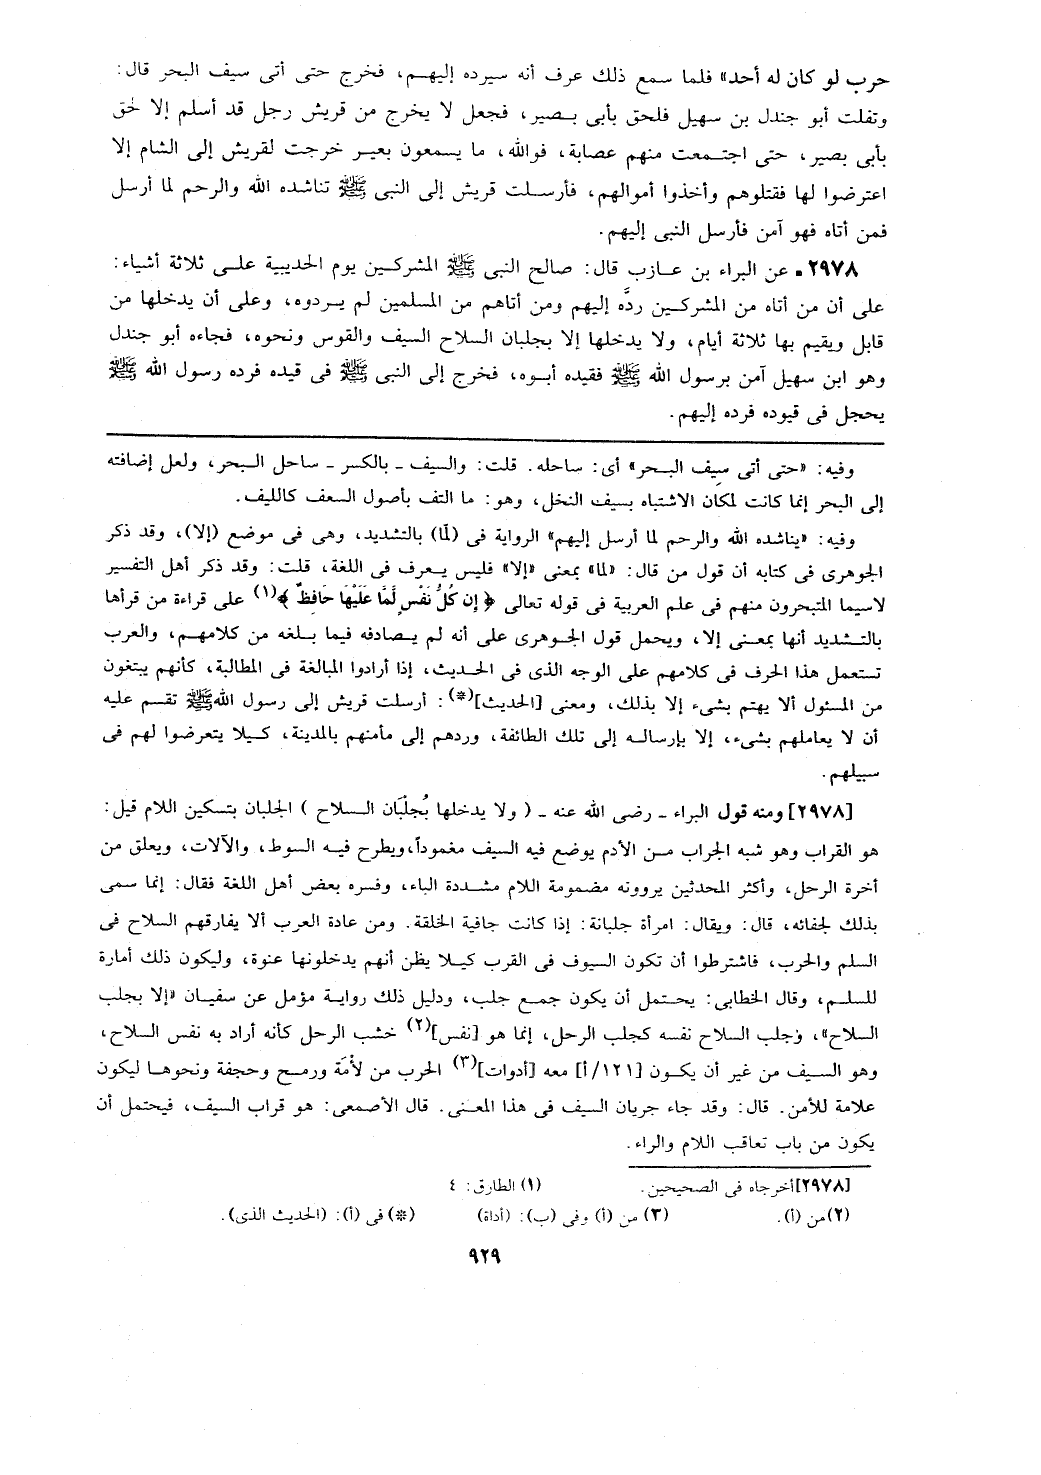 حرب لو كان له أحد» فلما سمع ذلك عرف أنه سيرده إليهم، فخرج حتى أتى سيف البحر قال:
وتفلت أبو جندل بن سهيل فلحق بأبى بصير، فجعل لا يخرج من قريش رجل قد أسلم إلا لحق
بأبى بصير، حتى اجتمعت منهم عصابة، فوالله، ما يسمعون بعير خرجت لقريش إلى الشام إلا
اعترضوا لها فقتلوهم وأخذوا أموالهم، فأرسلت قريش إلى النبى ﷺ تناشده الله والرحم لما أرسل
فمن أتاه فهو آمن فأرسل النبى إليهم.
٢٩٧٨ ـ عن البراء بن عازب قال: صالح النبى ﷺ المشركين يوم الحديبية على ثلاثة أشياء:
على أن من أتاه من المشركين ردَّه إليهم ومن أتاهم من المسلمين لم يردوه، وعلى أن يدخلها من
قابل ويقيم بها ثلاثة أيام، ولا يدخلها إلا بجلبان السلاح السيف والقوس ونحوه، فجاءه أبو جندل
وهو ابن سهيل آمن برسول الله ﷺ فقيده أبوه، فخرج إلى النبى ﷺ فى قيده فرده رسول الله ﷺ
يحجل فى قيوده فرده إليهم.
وفيه: «حتى أتى سِيف البحر» أى: ساحله. قلت: والسيف ـ بالكسر ـ ساحل البحر، ولعل إضافته
إلى البحر إنما كانت لمكان الاشتباه بسيف النخل، وهو: ما التف بأصول السعف كالليف.
وفيه: «يناشده الله والرحم لما أرسل إليهم» الرواية فى (لمَّا) بالتشديد، وهى فى موضع (إلا)، وقد ذكر
الجوهرى فى كتابه أن قول من قال: «لما» بمعنى «إلا» فليس يعرف فى اللغة، قلت: وقد ذكر أهل التفسير
لاسيما المتبحرون منهم فى علم العربية فى قوله تعالى ﴿إِن كُلُّ نَفْسٍ لَّمَّا عَلَيْهَا حَافِظٌ﴾(١) على قراءة من قرأها
بالتشديد أنها بمعنى إلا، ويحمل قول الجوهرى على أنه لم يصادفه فيما بلغه من كلامهم، والعرب
تستعمل هذا الحرف فى كلامهم على الوجه الذى فى الحديث، إذا أرادوا المبالغة فى المطالبة، كأنهم يبتغون
من المسئول ألا يهتم بشىء إلا بذلك، ومعنى [الحديث](*): أرسلت قريش إلى رسول اللهﷺ تقسم عليه
أن لا يعاملهم بشىء، إلا بإرساله إلى تلك الطائفة، وردهم إلى مأمنهم بالمدينة، كيلا يتعرضوا لهم فى
سبيلهم.
[٢٩٧٨] ومنه قول البراء ـ رضى الله عنه ـ ( ولا يدخلها بُجلبَان السلاح ) الجلبان بتسكين اللام قيل:
هو القراب وهو شبه الجراب من الأدم يوضع فيه السيف مغموداً،ويطرح فيه السوط، والآلات، ويعلق من
أخرة الرحل، وأكثر المحدثين يروونه مضمومة اللام مشددة الباء، وفسره بعض أهل اللغة فقال: إنما سمى
بذلك لجفائه، قال: ويقال: امرأة جلبانة: إذا كانت جافية الخلقة. ومن عادة العرب ألا يفارقهم السلاح فى
السلم والحرب، فاشترطوا أن تكون السيوف فى القرب كيلا يظن أنهم يدخلونها عنوة، وليكون ذلك أمارة
للسلم، وقال الخطابى: يحتمل أن يكون جمع جلب، ودليل ذلك رواية مؤمل عن سفيان «إلا بجلب
السلاح»، وجلب السلاح نفسه كجلب الرحل، إنما هو [نفس](٢) خشب الرحل كأنه أراد به نفس السلاح،
وهو السيف من غير أن يكون [١٢١/أ] معه [أدوات](٣) الحرب من لأْمَة ورمح وحجفة ونحوها ليكون
علامة للأمن. قال: وقد جاء جريان السيف فى هذا المعنى. قال الأصمعى: هو قراب السيف، فيحتمل أن
يكون من باب تعاقب اللام والراء.
[٢٩٧٨]أخرجاه فى الصحيحين. (١) الطارق: ٤
(٢)من (أ). (٣) من (أ) وفى (ب): (أداة) (*) فى (أ): (الحديث الذى).
٩٢٩